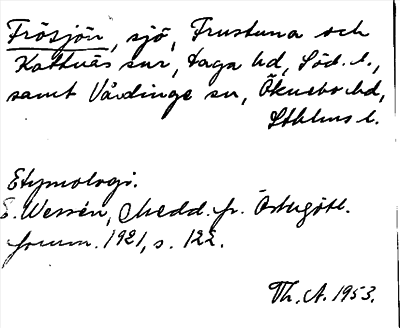 Frösjön, sjö, Frustuna och
Kattnäs snr, Daga hd, Söd. l.,
samt Vårdinge sn, Öknebo hd,
Sthlms l.
Etymologi.
E. Wessén, Medd. fr. Östergötl.
fornm. 1921, s. 122.
Th. A. 1953.